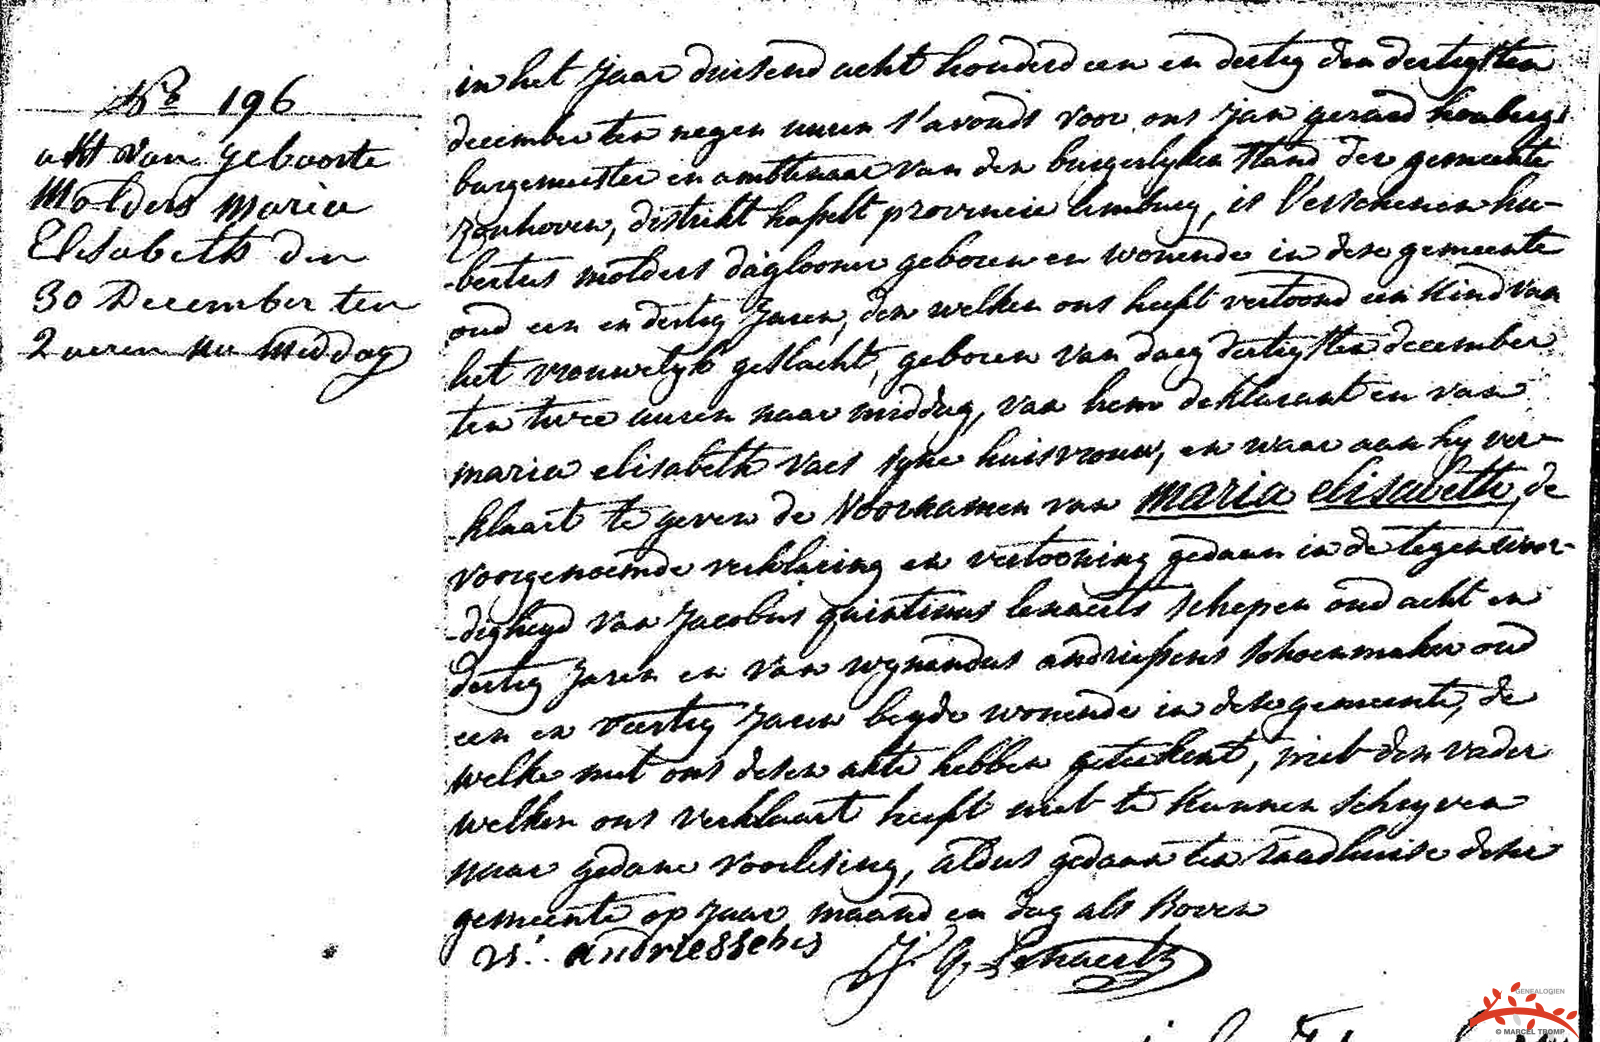 No 196
akt van geboorte
Molders Maria
Elisabeth den
30 December ten
2 uren na middag
in het Jaar duisend acht honderd een en dertig den dertigsten
december ten negen uuren s'avonds voor ons Jan gerard houbrigs
burgemeester en ambtenaar van den burgerlyken stand der gemeente
zonhoven, distrikt hasselt provincie limburg, is verschenen hu-
-bertus molders daglooner geboren en wonende in dese gemeente
oud een en dertig Jaren, den welken ons heeft vertoond een kind van
het vrouwelyk geslacht, geboren van daeg dertigsten december
ten twee uuren naar middag, van hem deklarant en van
maria elisabeth vaes syne huisvrouw, en waar aan hy ver-
-klaart te geven de voornamen van maria elisabeth, de
voorgenoemde verklaring en vertooning gedaan in de tegenwoor-
-digheyd van Jacobus quintinus lenaerts schepen oud acht en
dertig Jaren en van wynandus andriessens schoenmaker oud
een en veertig Jaren beyde wonende in dese gemeente, de
welke met ons desen akte hebben geteekent, niet den vader
welken ons verklaart heeft niet te kunnen schryven
naar gedane voorlesing, aldus gedaan ten raadhuise deser
gemeente op Jaar maand en dag als Boven
W. andriessens J. Q. Lenaerts
GENEALOGIEN
© MARCEL TROMP